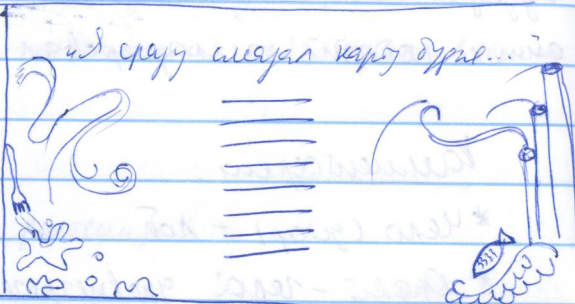 „Я сразу смазал карту будня..."